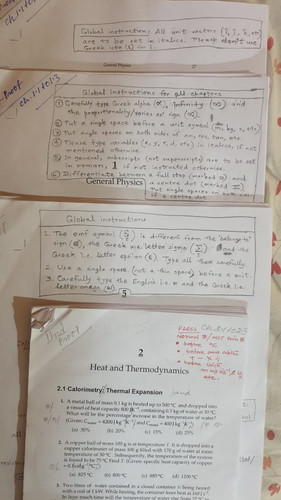 Global instruction: All unit vectors (î, ĵ, k̂, etc)
are to be set in italics. Please don't use
Greek iota (ι) in î.
General Physics
Proof
Global instructions for all chapters
① Carefully type Greek alpha (α), infinity (∞) and
the proportionality/varies as sign (∝).
② Put a single space before a unit symbol (m, kg, s, etc)
③ Put single spaces on both sides of sin, cos, tan, etc.
④ Please type variables (x, y, r, d, etc) in italics, if not
mentioned otherwise.
⑤ In general, subscripts (not superscripts) are to be set
in roman, if not instructed otherwise.
1
⑥ Differentiate between a full stop (marked ⊙) and
a centre dot (marked
General Physics
Put single spaces on both
of a centre dot.
Global instructions
1. The emf symbol (ℰ) is different from the 'belongs to'
sign (∈), the Greek u.c. letter sigma (Σ) and the
Greek l.c. letter epsilon (ε). Type all these carefully.
2. Use a single space (not a thin space) before a unit.
3. Carefully type the English l.c. w and the Greek l.c.
letter omega (ω).
5
Third
Proof
2
Heat and Thermodynamics
2.1 Calorimetry, Thermal Expansion
and
1. A metal ball of mass 0.1 kg is heated up to 500 °C and dropped into
a vessel of heat capacity 800 JK⁻¹, containing 0.5 kg of water at 30 °C.
What will be the percentage increase in the temperature of water?
(a) 30% (b) 20% (c) 15% (d) 25%
2. A copper ball of mass 100 g is at temperature T. It is dropped into a
copper calorimeter of mass 100 g filled with 170 g of water at room
temperature of 30 °C. Subsequently, the temperature of the system
is found to be 75 °C. Find T. (Given: specific heat capacity of copper
(a) 825 °C (b) 800 °C (c) 885 °C (d) 1250 °C
3. Two litres of water contained in a closed container is being heated
with a coil of 1 kW. While heating, the container loses heat at 160 J s⁻¹.
In how much time will the temperature of water rise from 27 °C to